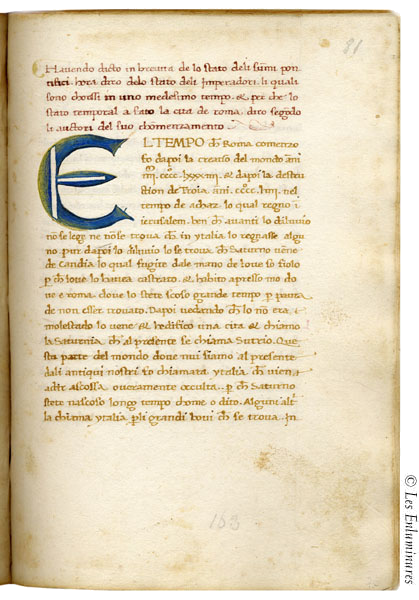 81
Havendo dicto in brevita de lo stato deli sum̄i pon
tifici. hora diro delo stato deli Imperadori. li quali
sono chorsi in uno medesimo tempo. & per che lo
stato temporal a fato la cita de roma. diro segōdo
li auctori del suo chomenzamento
EL TEMPO ch̄ Roma comenzo
fo dapoi la creatiō del mondo āni
IIII. CCCC. LXXXIIII. & dapoi la destru
ction de Troia āni. CCCC. LIIII. nel
tempo de achaz lo qual regno ī
ierusalem. ben ch̄ avanti lo diluvio
nō se lege ne nō se trova ch̄ in ytalia lo regnasse algu
no. pur dapoi lo diluvio lo se trova ch̄ Saturno vēne
de Candia lo qual fugite dale mano de Iove so fiolo
p ch̄ Iove lo havea castrato. & habito apresso mo do
ve e roma. dove lo stete scoso grande tempo p paura
de non esser trovato. Dapoi vedando ch̄ lo nō era
molestado lo vene & hedifico una cita & chiamo
la Saturnia ch̄ al presente se chiama Sutrio. Que
sta parte del mondo dove nui siamo al presente
dali antiqui nostri fo chiamata ytalia ch̄ vien
a dir ascossa overamente occulta. p ch̄ Saturno
stete nascoso longo tempo chome o dito. Alguni alt̄
la chiama ytalia p li grandi bovi ch̄ se trova. In
153
© Les Enluminures